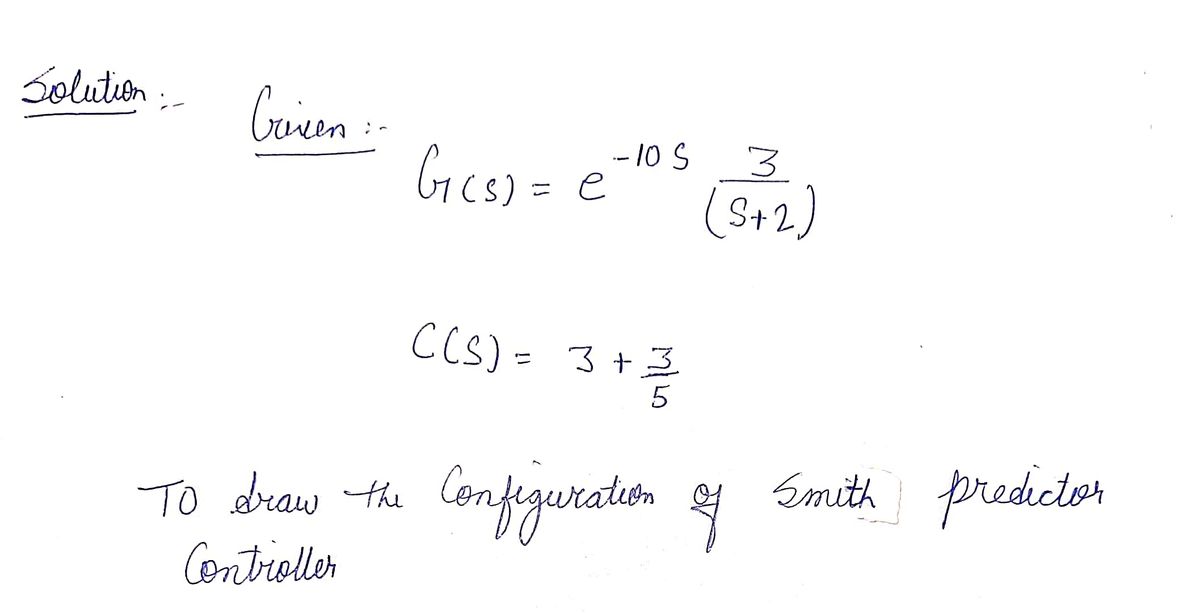 Solution :-
Given :-
G(s) = e^{-10 S} \frac{3}{(S+2)}
C(S) = 3 + \frac{3}{5}
To draw the Configuration of Smith predictor
Controller